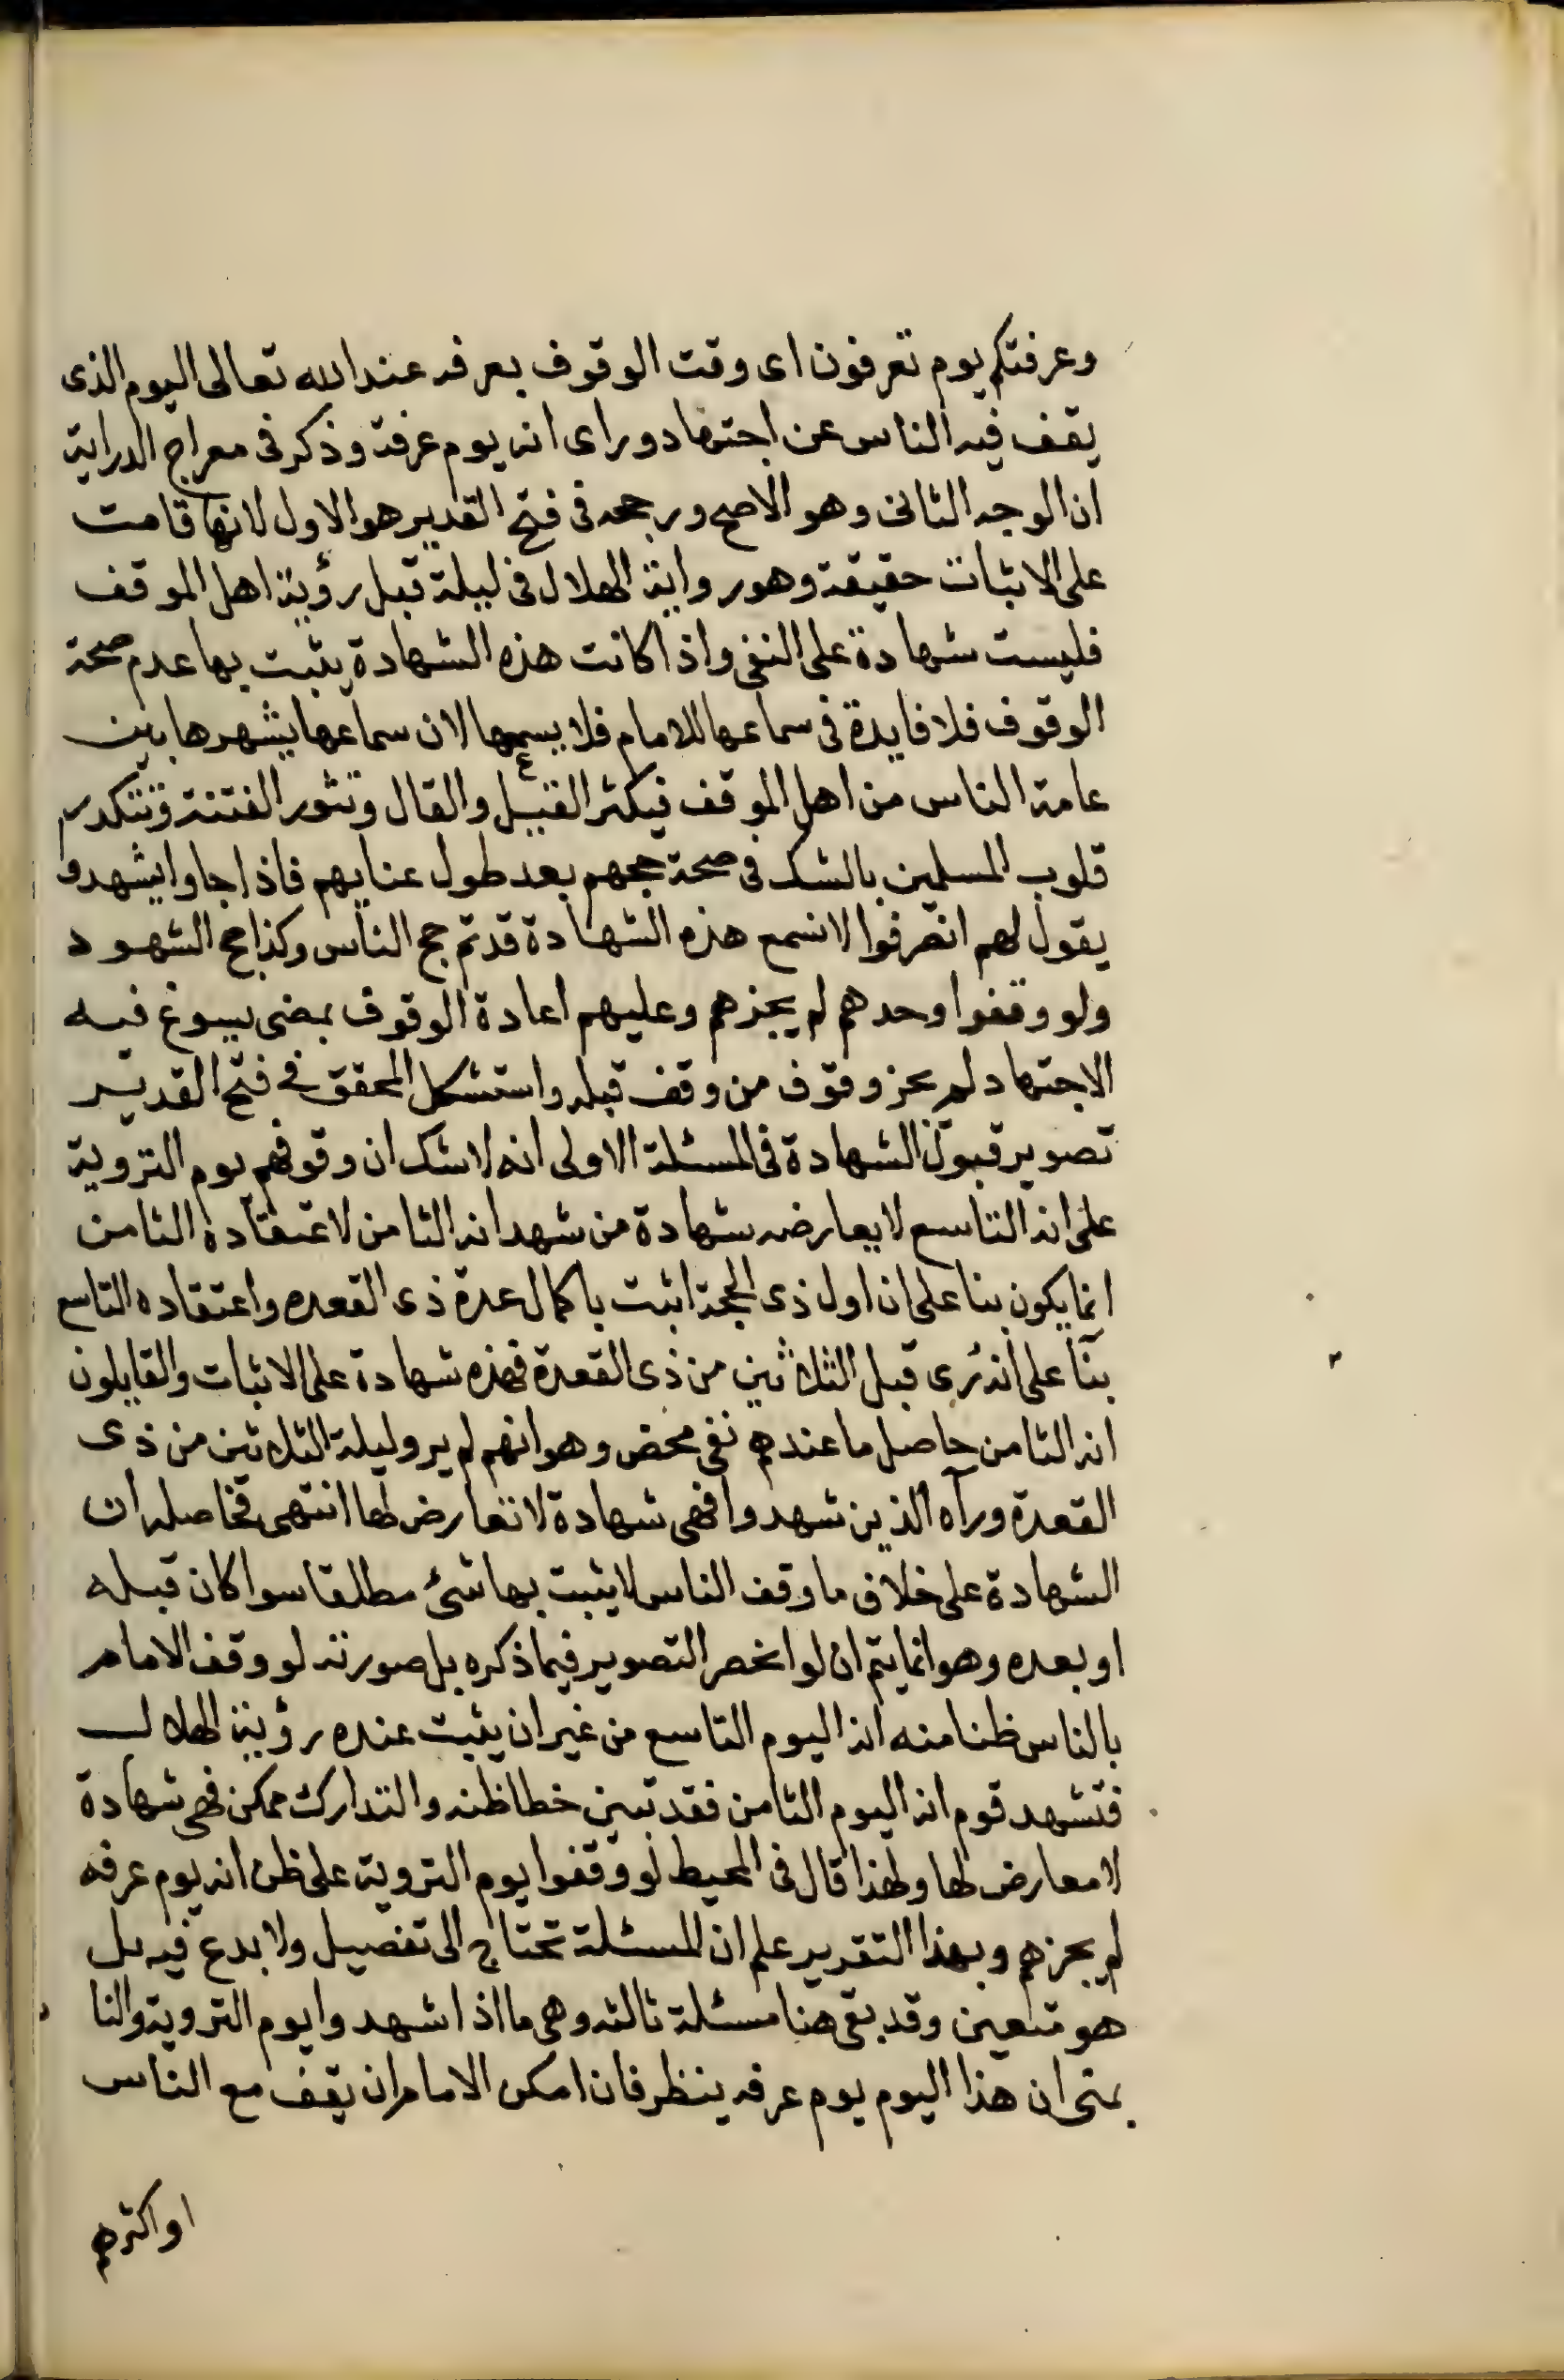 وعرفتكم يوم تعرفون اى وقت الوقوف بعرفه عند الله تعالى اليوم الذى
يقف فيه الناس عن اجتهاد وراى انه يوم عرفة وذكر فى معراج الدراية
ان الوجه الثانى وهو الاصح ورجحه فى فتح القدير هو الاول لانها قامت
على الاثبات حقيقة وهو رواية الهلال فى ليلة قبل رؤية اهل الموقف
فليست شهادة على النفى واذا كانت هذه الشهادة يثبت بها عدم صحة
الوقوف فلا فايدة فى سماعها للامام فلا يسمعها لان سماعها يشهرها بين
عامة الناس من اهل الموقف فيكثر القيل والقال وتثور الفتنة وتتكدر
قلوب المسلمين بالشك فى صحة حجهم بعد طول عنايهم فاذا جاوا يشهدو
يقول لهم انصرفوا لا نسمع هذه الشهادة قد تم حج الناس وكذا حج الشهود
ولو وقفوا وحدهم لم يجزهم وعليهم اعادة الوقوف بمضى يسوغ فيه
الاجتهاد لم يجز وقوف من وقف قبله واستشكل المحقق فى فتح القدير
تصوير قبول الشهادة فى المسئلة الاولى انه لا شك ان وقوفهم يوم التروية
على انه التاسع لا يعارضه شهادة من شهد انه الثامن لاعتقاده الثامن
انما يكون بنا على ان اول ذى الحجة اثبت باكمال عدة ذى القعده واعتقاده التاسع
بنآ على انه رى قبل الثلاثين من ذى القعدة فهذه شهادة على الاثبات والقايلون
انه الثامن حاصل ما عندهم نفى محض وهو انهم لم يرو ليلة الثلاثين من ذى
القعدة ورآه الذين شهدوا فهى شهادة لا تعارض لها انتهى فحاصله ان
الشهادة على خلاف ما وقف الناس لا يثبت بها شئ مطلقا سوا كان قبله
او بعده وهو انما يتم ان لو انحصر التصوير فيما ذكره بل صورته لو وقف الامام
بالناس ظنا منه انه اليوم التاسع من غير ان يثبت عنده رؤية الهلال
فتشهد قوم انه اليوم الثامن فقد تبين خطا ظنه والتدارك ممكن فهى شهادة
لا معارض لها ولهذا قال فى المحيط لو وقفوا يوم التروية على ظن انه يوم عرفه
لم يجزهم وبهذا التقرير علم ان المسئلة تحتاج الى تفصيل ولا بدع فيه بل
هو متعين وقد بقى هنا مسئلة ثالثه وهى ما اذا شهدوا يوم التروية والنا
بمنى ان هذا اليوم يوم عرفه ينظر فان امكن الامام ان يقف مع الناس
او اكثرهم